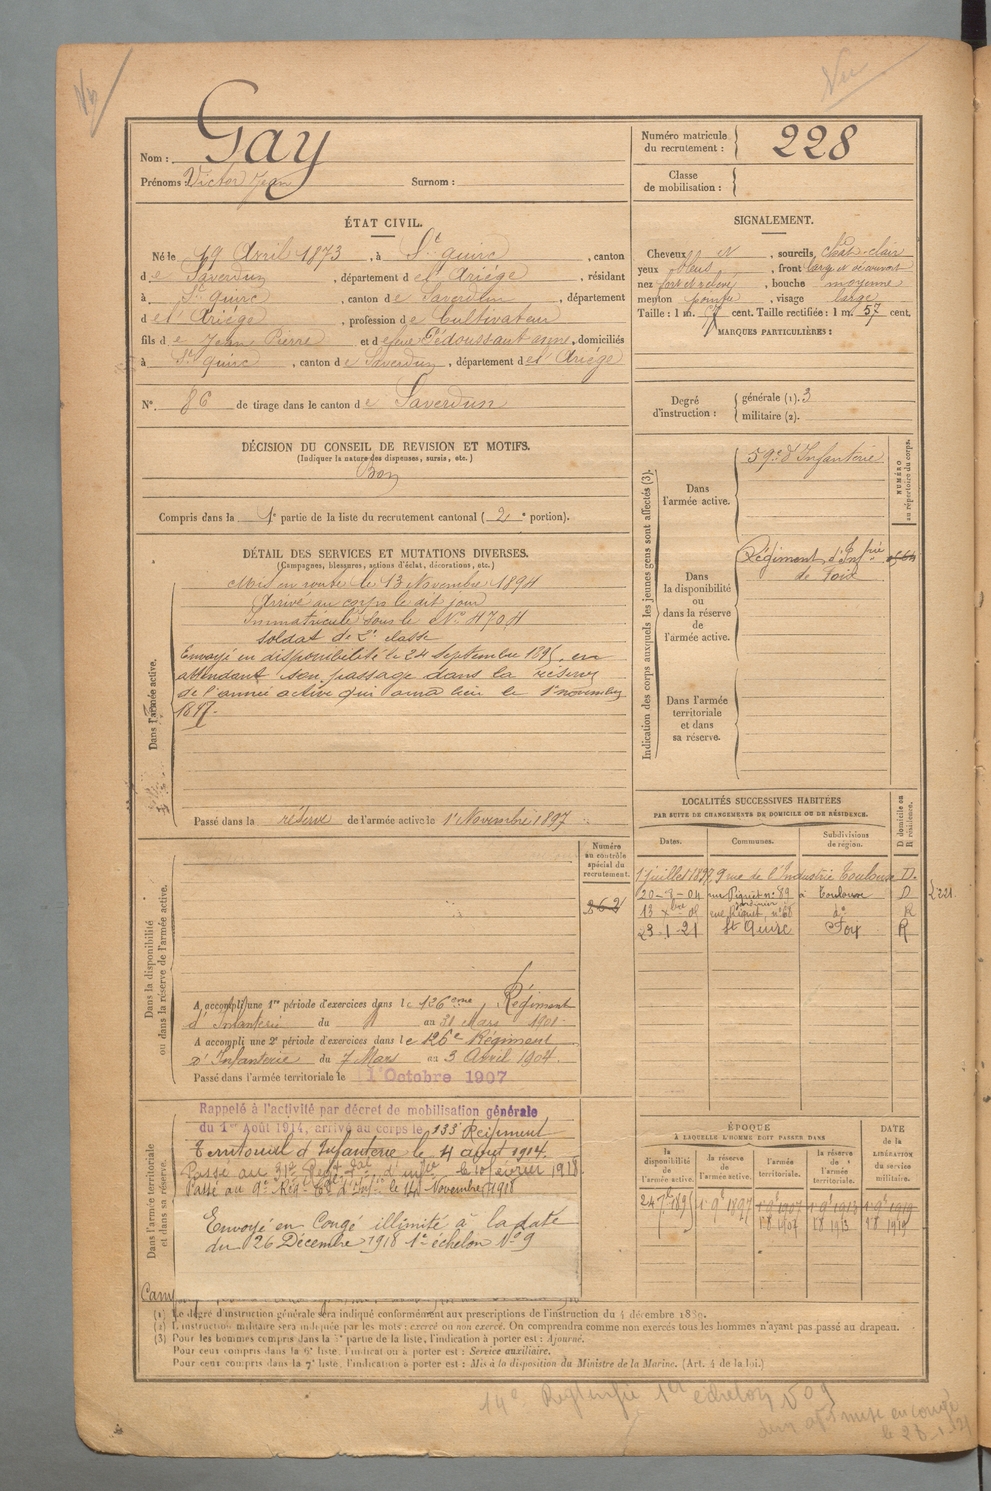 Vu
Nom : Gay
Prénoms : Victor Jean Surnom :
Numéro matricule du recrutement : 228
Classe de mobilisation :
ÉTAT CIVIL.
Né le 19 Avril 1873, à St quirc, canton
de Saverdun, département de l'Ariège, résidant
à St quirc, canton de Saverdun, département
de l'Ariège, profession de Cultivateur
fils de Jean Pierre et de feue Gédoussaut anne, domiciliés
à St quirc, canton de Saverdun, département de l'Ariège
N° 86 de tirage dans le canton de Saverdun
SIGNALEMENT.
Cheveux et N, sourcils chat-clair
yeux bleus, front large et découvert
nez fort et relevé, bouche moyenne
menton pointu, visage large
Taille : 1 m. cent. Taille rectifiée : 1 m. 57 cent.
MARQUES PARTICULIÈRES :
Degré d'instruction :
générale (1). 3
militaire (2).
DÉCISION DU CONSEIL DE REVISION ET MOTIFS.
(Indiquer la nature des dispenses, sursis, etc.)
Bon
Compris dans la 1e partie de la liste du recrutement cantonal (2e portion).
DÉTAIL DES SERVICES ET MUTATIONS DIVERSES.
(Campagnes, blessures, actions d'éclat, décorations, etc.)
Dans l'armée active.
Mis en route le 13 Novembre 1894
Arrivé au corps le dit jour
Immatriculé sous le N° 4704
soldat de 2e classe
Envoyé en disponibilité le 24 Septembre 1895, en
attendant son passage dans la réserve
de l'armée active qui aura lieu le 1er novembre
1897.
Passé dans la réserve de l'armée active le 1er Novembre 1897
Indication des corps auxquels les jeunes gens sont affectés (3).
NUMÉRO au répertoire du corps.
Dans l'armée active.
59e d'Infanterie
Dans la disponibilité ou dans la réserve de l'armée active.
Régiment d'Infrie
de Foix
Dans l'armée territoriale et dans sa réserve.
LOCALITÉS SUCCESSIVES HABITÉES
PAR SUITE DE CHANGEMENTS DE DOMICILE OU DE RÉSIDENCE.
Dates. Communes. Subdivisions de région. D domicile ou R résidence.
1 juillet 1897 9 rue de l'Industrie Toulouse D.
20-3-04 rue Riquet n° 89 à Toulouse D
13 Xbre 08 rue Riquet, n° 68 do R
23-1-21 St Quirc Foix R
Dans la disponibilité ou dans la réserve de l'armée active.
Numéro au contrôle spécial du recrutement.
862
A accompli une 1re période d'exercices dans le 126eme Régiment
d'Infanterie du au 31 Mars 1901
A accompli une 2e période d'exercices dans le 126e Régiment
d'Infanterie du 7 Mars au 3 Avril 1904.
Passé dans l'armée territoriale le 1er Octobre 1907
Dans l'armée territoriale et dans sa réserve.
Rappelé à l'activité par décret de mobilisation générale
du 1er Août 1914, arrivé au corps le 133e Régiment
Territorial d'Infanterie le 4 août 1914.
Passé au 31e Régt Tal d'infie le 10 février 1918
Passé au 9e Rég. Tal d'Infie le 14 Novembre 1918
Envoyé en Congé illimité à la date
du 26 Décembre 1918 1er échelon N° 9
Cam
ÉPOQUE
À LAQUELLE L'HOMME DOIT PASSER DANS
DATE de la LIBÉRATION du service militaire.
la disponibilité de l'armée active.
la réserve de l'armée active.
l'armée territoriale.
la réserve de l'armée territoriale.
24 7bre 1895 1er 9bre 1897 1er 9bre 1907 1er 9bre 1913 1er 9bre 1919
1 8 1907 1 8 1913 1 8 1919
(1) Le degré d'instruction générale sera indiqué conformément aux prescriptions de l'instruction du 4 décembre 1889.
(2) L'instruction militaire sera indiquée par les mots : exercé ou non exercé. On comprendra comme non exercés tous les hommes n'ayant pas passé au drapeau.
(3) Pour les hommes compris dans la 5e partie de la liste, l'indication à porter est : Ajourné.
Pour ceux compris dans la 6e liste, l'indication à porter est : Service auxiliaire.
Pour ceux compris dans la 7e liste, l'indication à porter est : Mis à la disposition du Ministre de la Marine. (Art. 4 de la loi.)
14e Regt Infie 1er échelon n° 9